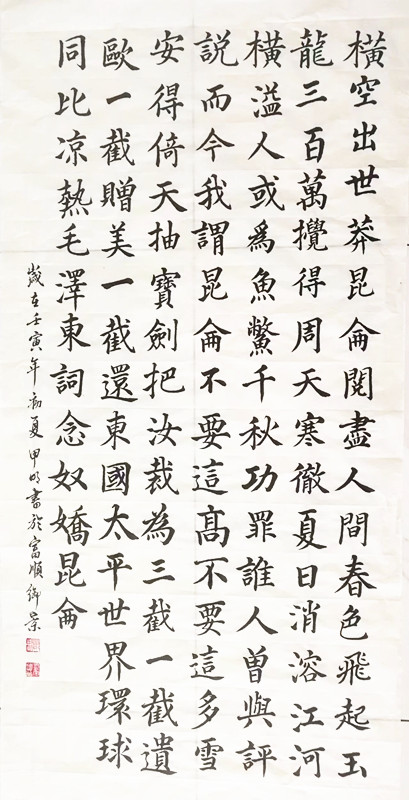 橫空出世莽昆侖閱盡人間春色飛起玉
龍三百萬攪得周天寒徹夏日消溶江河
橫溢人或爲魚鱉千秋功罪誰人曾與評
説而今我謂昆侖不要這髙不要這多雪
安得倚天抽寶劍把汝裁為三截一截遺
歐一截贈美一截還東國太平世界環球
同比凉熱毛澤東詞念奴嬌昆侖
歲在壬寅年初夏甲明書於富順御景